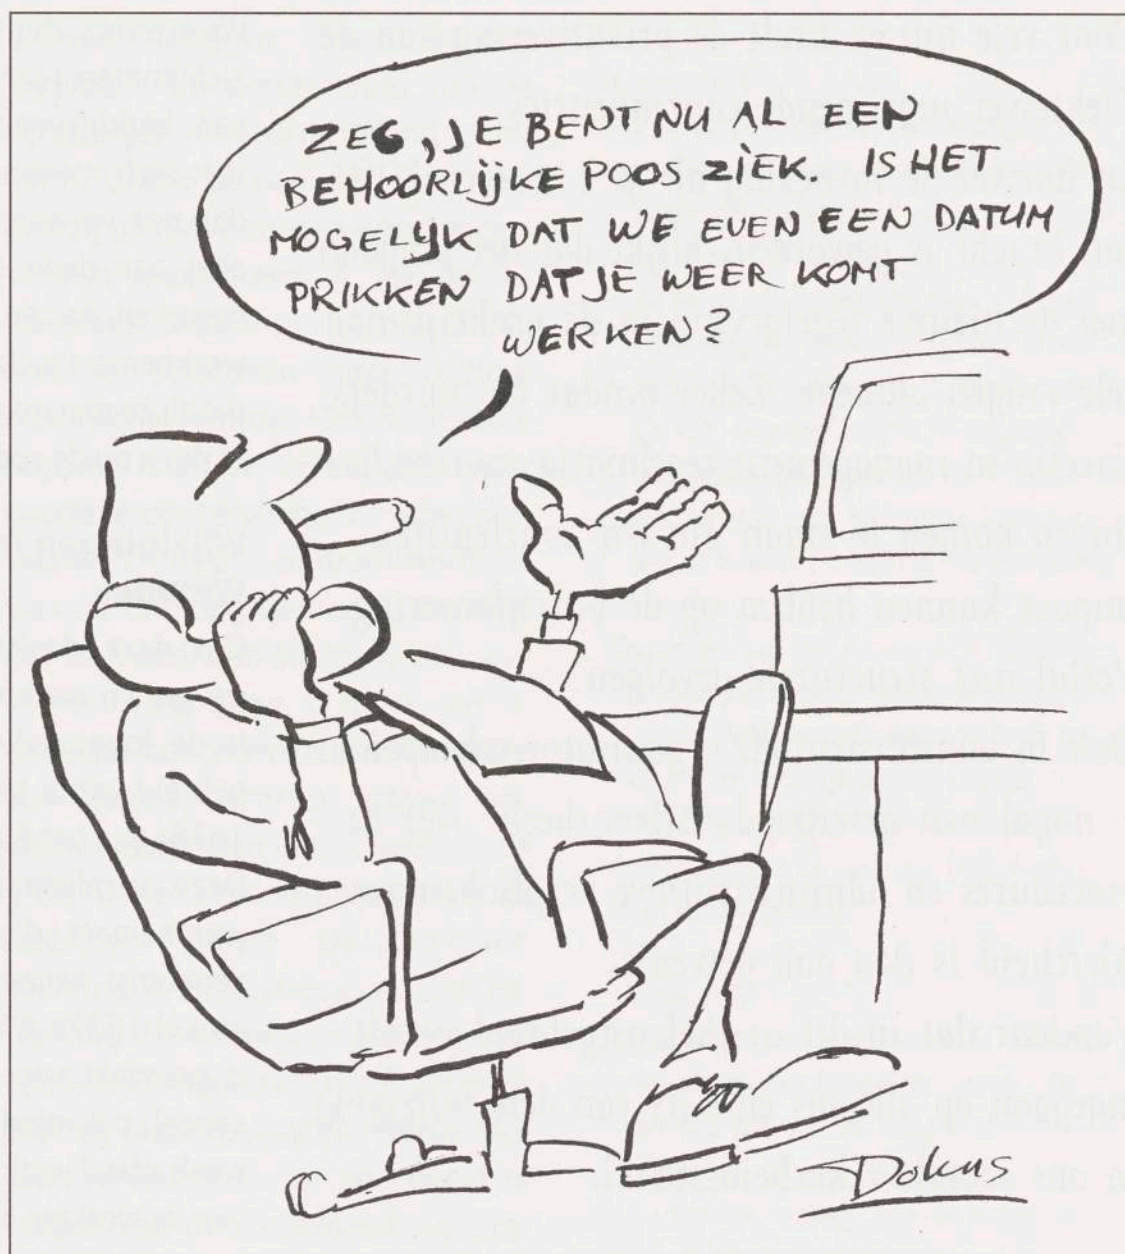 ZEG, JE BENT NU AL EEN
BEHOORLIJKE POOS ZIEK. IS HET
MOGELIJK DAT WE EVEN EEN DATUM
PRIKKEN DAT JE WEER KOMT
WERKEN?
Dokus